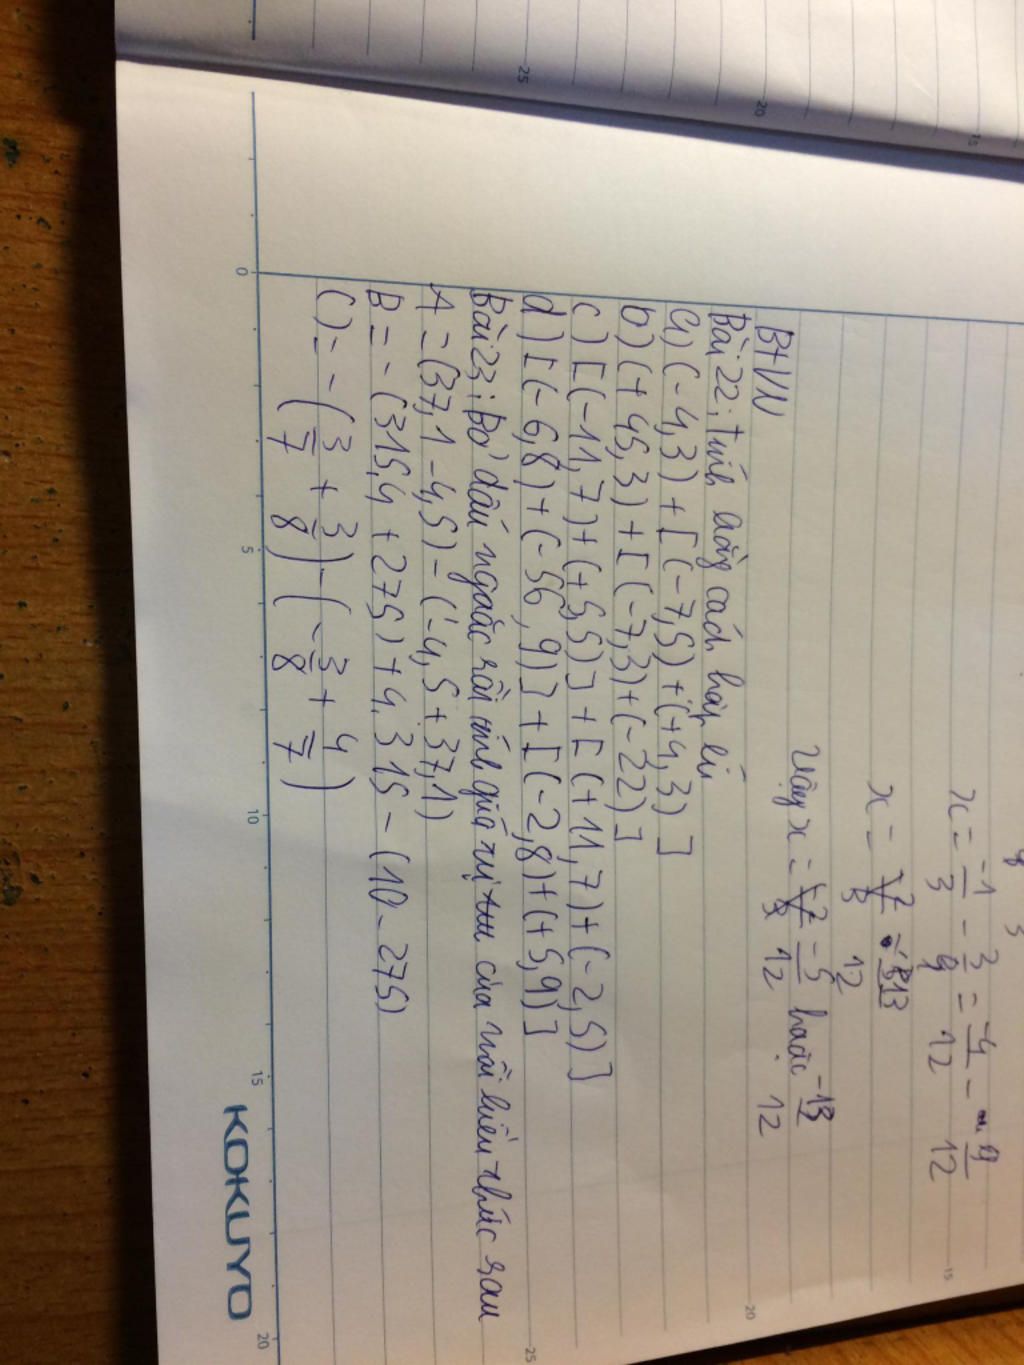 x = -1/3 - 3/4 = -4/12 - 9/12
x = -13/12
Vậy x = -5/12 hoặc -13/12
BTVN
Bài 22: tính bằng cách hợp lí
a) (-4,3) + [(-7,5) + (+4,3)]
b) (+45,3) + [(-7,3) + (-22)]
c) [(-11,7) + (+5,5)] + [(+11,7) + (-2,5)]
d) [(-6,8) + (-56,9)] + [(-2,8) + (+5,9)]
Bài 23: Bỏ dấu ngoặc rồi tính giá trị của biểu thức sau
A = (37,1 - 4,5) - (-4,5 + 37,1)
B = -(315.4 + 275) + 4.315 - (10 - 275)
C) = -(3/7 + 3/8) - (-3/8 + 4/7)
0 5 10 15 20
25 20 15
15 20 25
KOKUYO